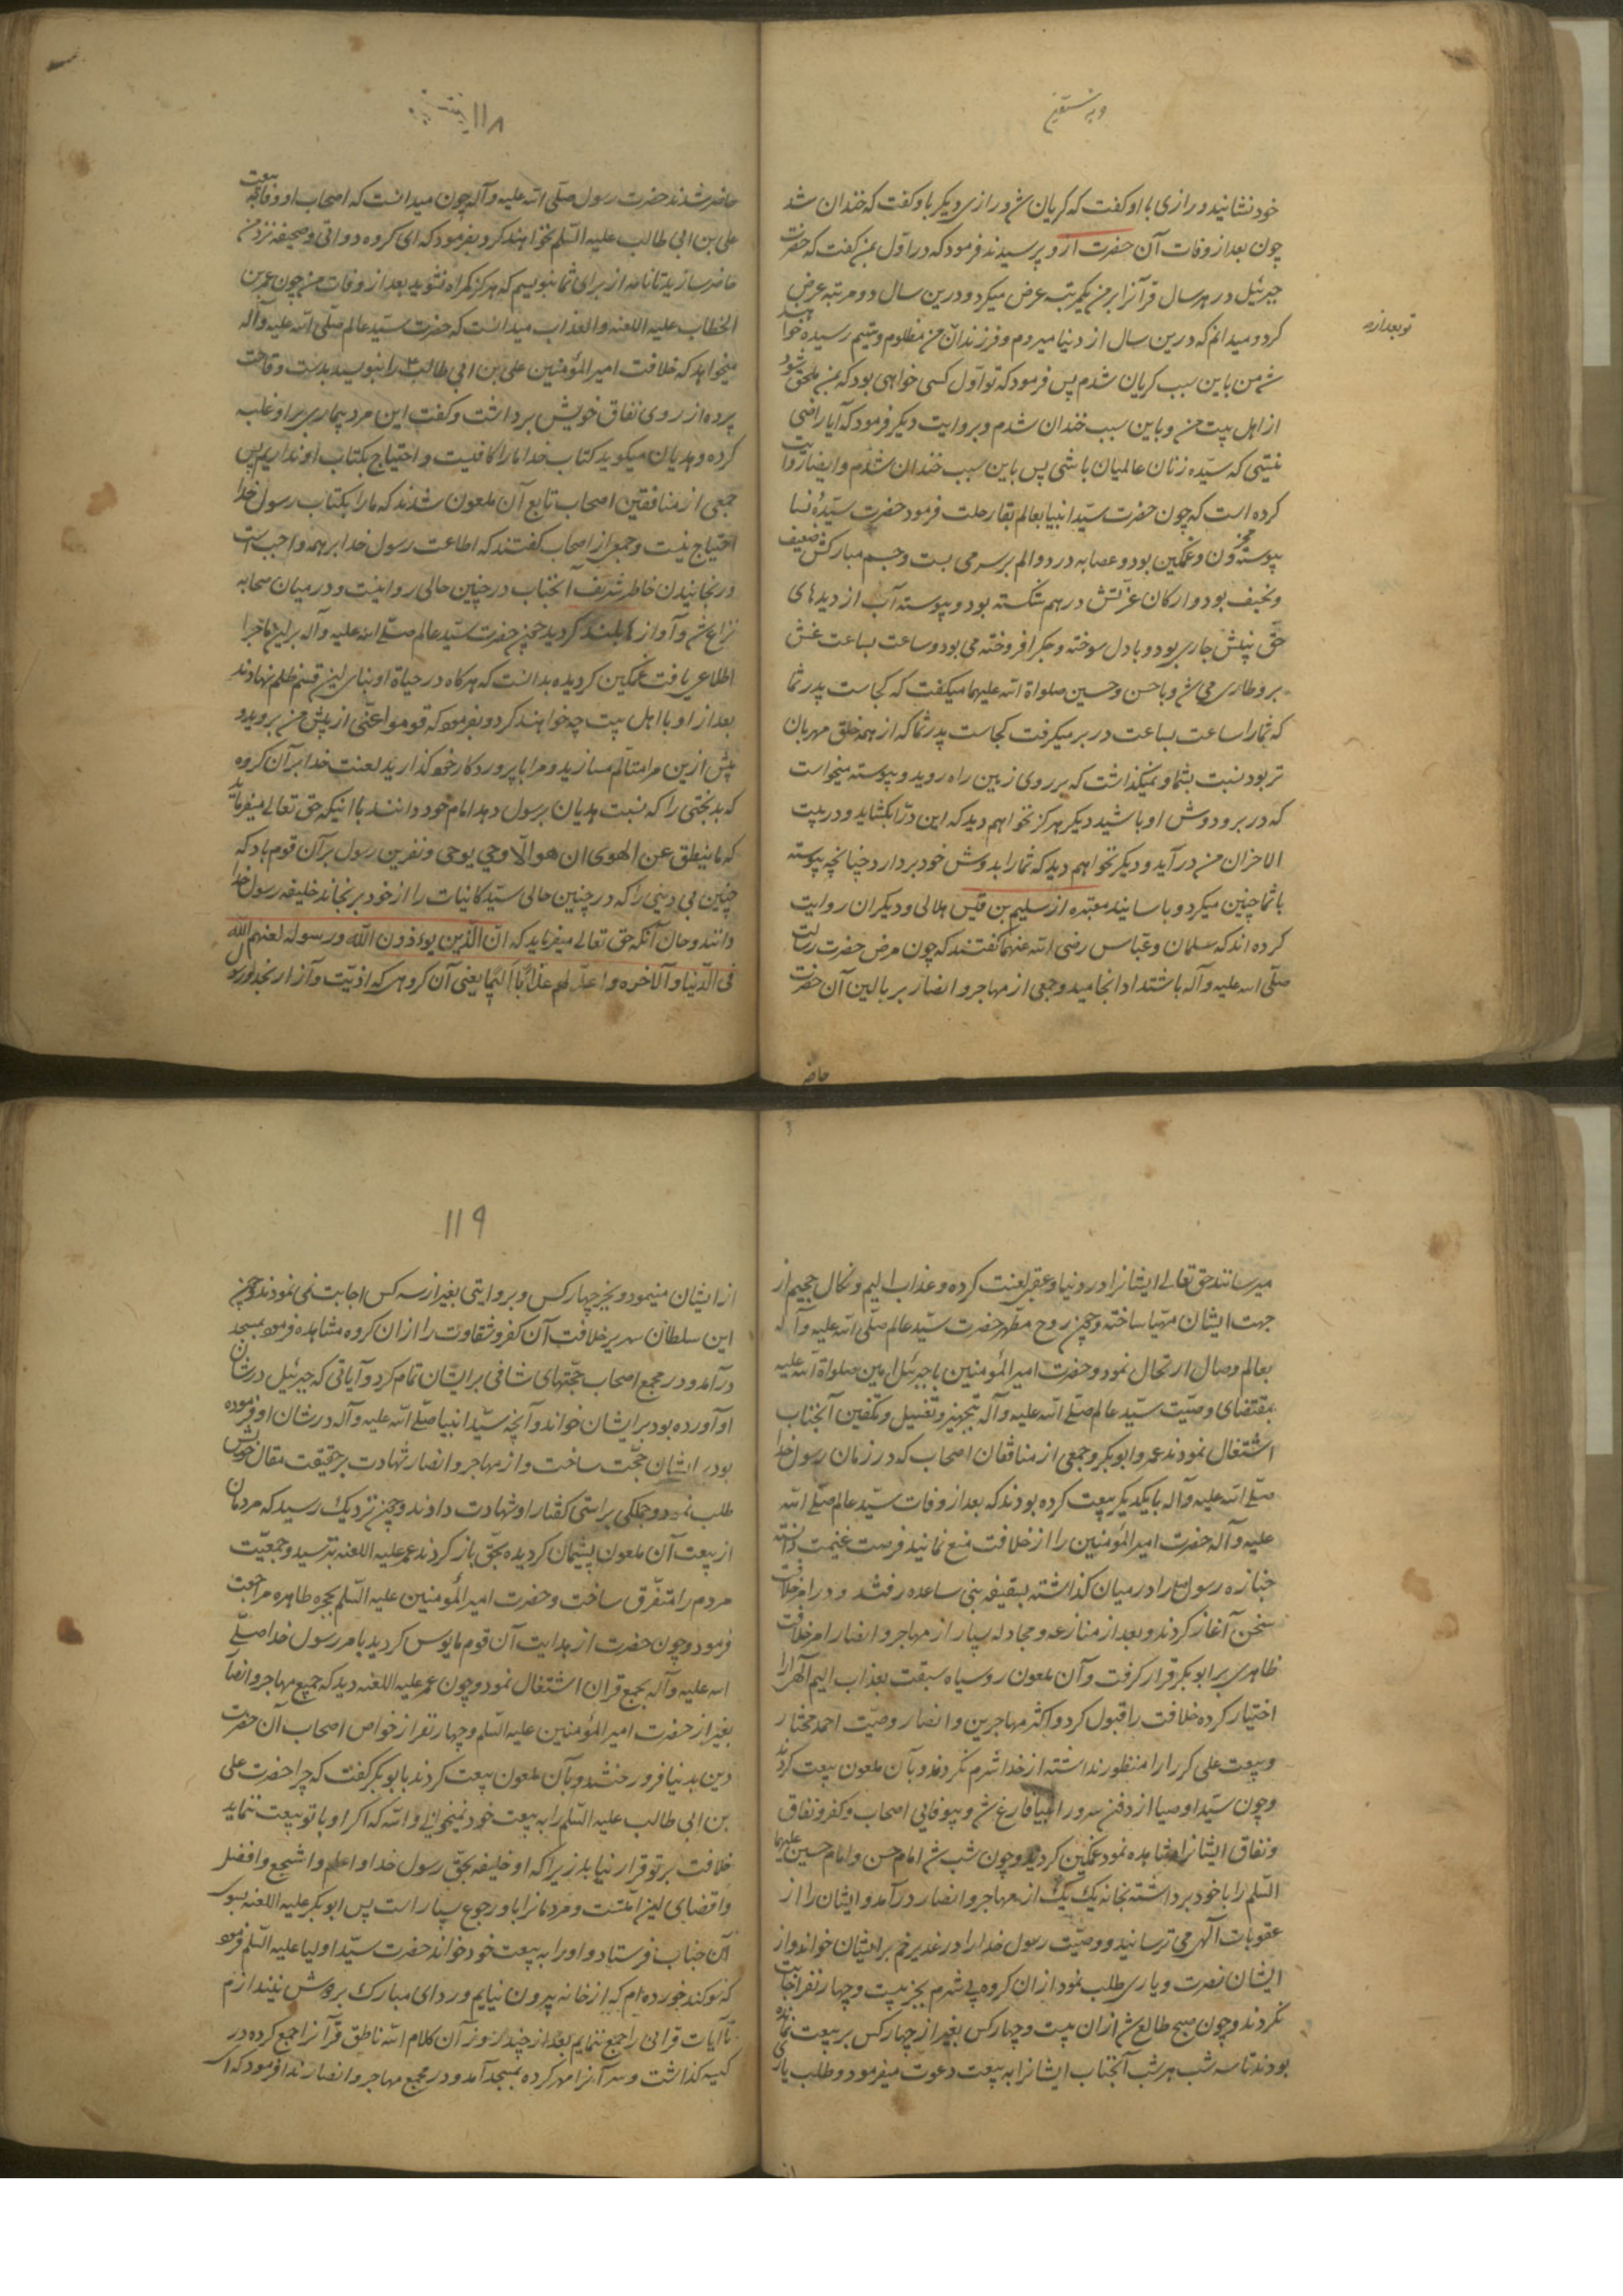 خود نشانید و رازی با او گفت که گریان شد و رازی دیگر باو گفت که خندان شد
چون بعد از وفات آن حضرت ازو پرسیدند فرمود که در اول بمن گفت که حضرت
جبرئیل در هر سال قرآنرا بر من یکمرتبه عرض میکرد و درین سال دو مرتبه عرض
کرد و میدانم که درین سال از دنیا میروم و فرزندان من مظلوم و یتیم رسیده خواهند
تو بعد از من
شد من باین سبب گریان شدم پس فرمود که تو اول کسی خواهی بود که بمن ملحق شود
از اهل بیت من و باین سبب خندان شدم و بروایت دیگر فرمود که آیا راضی
نیستی که سیّده زنان عالمیان باشی پس باین سبب خندان شدم و ایضا روایت
کرده است که چون حضرت سیّد انبیا بعالم بقا رحلت فرمود حضرت سیّده نسا
پیوسته محزون و غمگین بود و عصابه درد و الم بر سر می بست و جسم مبارکش ضعیف
و نحیف بود و ارکان عزّتش درهم شکسته بود و پیوسته آب از دیدهای
حق بینش جاری بود و با دل سوخته و جگر افروخته می بود و ساعت بساعت غش
برو طاری می شد و با حسن و حسین صلواة الله علیهما میگفت که کجاست پدر شما
که شما را ساعت بساعت در بر میگرفت کجاست پدر شما که از همه خلق مهربان
تر بود نسبت بشما و نمیگذاشت که بر روی زمین راه روید و پیوسته میخواست
که در بر و دوش او باشید دیگر هرگز نخواهم دید که این در را بگشاید و در بیت
الاحزان من در آید و دیگر نخواهم دید که شما را بدوش خود بردارد چنانچه پیوسته
با شما چنین میکرد و باسانید معتبره از سلیم بن قیس هلالی و دیگران روایت
کرده اند که سلمان و عباس رضی الله عنهما گفتند که چون مرض حضرت رسالت
صلّی الله علیه و آله باشتداد انجامید و جمعی از مهاجر و انصار بر بالین آن حضرت
حاضر
۱۱۸
حاضر شدند حضرت رسول صلّی الله علیه و آله چون میدانست که اصحاب او وفا به بیعت
علی بن ابی طالب علیه السّلم نخواهند کرد بفرمود که ای گروه دواتی و صحیفه نزد من
حاضر سازید تا نامه از برای شما بنویسم که هرگز گمراه نشوید بعد از وفات من چون عمر بن
الخطاب علیه اللعنه و العذاب میدانست که حضرت سیّد عالم صلّی الله علیه و آله
میخواهد که خلافت امیر المؤمنین علی بن ابی طالب را بنویسد بدست وقاحت
پرده از روی نفاق خویش برداشت و گفت این مرد بیماری بر او غلبه
کرده و هدیان میگوید کتاب خدا ما را کافیست و احتیاج بکتاب او نداریم پس
جمعی از منافقین اصحاب تابع آن ملعون شدند که ما را بکتاب رسول خدا
احتیاج نیست و جمعی از اصحاب گفتند که اطاعت رسول خدا بر همه واجب است
و رنجانیدن خاطر شریف آنجناب در چنین حالی روا نیست و در میان صحابه
نزاع شد و آوازها بلند گردید چون حضرت سیّد عالم صلّی الله علیه و آله برین ماجرا
اطلاع یافت غمگین گردیده بدانست که هرگاه در حیاة او بنای این قسم ظلم نهادند
بعد از او با اهل بیت چه خواهند کرد و بفرمود که قوموا عنّی از پیش من بروید و
بیش ازین مرا متالّم مسازید و مرا با پروردگار خود گذارید لعنت خدا بر آن گروه
که بدبختی را که نسبت هدیان برسول دهد امام خود دانند با اینکه حق تعالی میفرماید
که ما ینطق عن الهوی ان هو الّا وحی یوحی و نفرین رسول بر آن قوم باد که
چنین بی دینی را که در چنین حالی سیّد کاینات را از خود برنجاند خلیفه رسول خدا
دانند و حال آنکه حق تعالی میفرماید که انّ الّذین یوءذون الله و رسوله لعنهم الله
فی الدّنیا و الآخره و اعدّ لهم عذاباً الیماً یعنی آن گروهی که اذیّت و آزار بخدا و رسول
میرسانند حق تعالی ایشانرا در دنیا و عقبی لعنت کرده و عذاب الیم و نکال جحیم از
جهت ایشان مهیّا ساخته و چون روح مطهر حضرت سیّد عالم صلّی الله علیه و آله
بعالم وصال ارتحال نمود و حضرت امیر المؤمنین با جبرئیل امین صلواة الله علیه
بمقتضای وصیّت سیّد عالم صلّی الله علیه و آله بتجهیز و تغسیل و تکفین آنجناب
اشتغال نمودند عمر و ابوبکر و جمعی از منافقان اصحاب که در زمان رسول خدا
صلّی الله علیه و آله با یکدیگر بیعت کرده بودند که بعد از وفات سیّد عالم صلّی الله
علیه و آله حضرت امیر المؤمنین را از خلافت منع نمانید فرصت غنیمت دانسته
جنازه رسول را در میان گذاشته بسقیفه بنی ساعده رفتند و در امر خلافت
سخن آغاز کردند و بعد از منازعه و مجادله بسیار از مهاجر و انصار امر خلافت
ظاهری بر ابوبکر قرار گرفت و آن ملعون روسیاه سبقت بعذاب الیم الهی را
اختیار کرده خلافت را قبول کرد و اکثر مهاجرین و انصار وصیّت احمد مختار
و بیعت علی کرار را منظور نداشته از خدا شرم نکردند و بآن ملعون بیعت کردند
و چون سیّد اوصیا از دفن سرور انبیا فارغ شد و بیوفایی اصحاب و کفر و نفاق
و نفاق ایشانرا مشاهده نمود غمگین گردید و چون شب شد امام حسن و امام حسین علیهما
السّلم را با خود برداشته بخانه یک یک از مهاجر و انصار در آمد و ایشان را از
عقوبات الهی می ترسانید و وصیّت رسول خدا را در غدیر خم بر ایشان خواند و از
ایشان نصرت و یاری طلب نمود از ان گروه بی شرم بجز بیست و چهار نفر اجابت
نکردند و چون صبح طالع شد از ان بیست و چهار کس بغیر از چهار کس بر بیعت نمانده
بودند تا سه شب هر شب آنجناب ایشانرا به بیعت دعوت میفرمود و طلب یاری
از
۱۱۹
از ایشان مینمود و بجز چهار کس و بروایتی بغیر از سه کس اجابت نمی نمودند و چون
این سلطان سریر خلافت آن کفر و شقاوت را از ان گروه مشاهده فرمود بمسجد
درآمد و در مجمع اصحاب حجّتهای شافی بر ایشان تمام کرد و آیاتی که جبرئیل در شان
او آورده بود بر ایشان خواند و آنچه سیّد انبیا صلّی الله علیه و آله در شان او فرموده
بود بر ایشان حجّت ساخت و از مهاجر و انصار شهادت بر حقیقت مقال خویش
طلب نمود و جملگی براستی گفتار او شهادت دادند و چون نزدیک رسید که مردمان
از بیعت آن ملعون پشیمان گردیده بحق باز گردند عمر علیه اللعنه بترسید و جمعیّت
مردم را متفرّق ساخت و حضرت امیر المؤمنین علیه السّلم بحجره طاهره مراجعت
فرمود و چون حضرت از هدایت آن قوم مایوس گردید بامر رسول خدا صلّی
الله علیه و آله بجمع قران اشتغال نمود و چون عمر علیه اللعنه دید که جمیع مهاجر و انصار
بغیر از حضرت امیر المؤمنین علیه السّلم و چهار نفر از خواص اصحاب آن حضرت
دین بدنیا فروختند و بآن ملعون بیعت کردند با بوبکر گفت که چرا حضرت علی
بن ابی طالب علیه السّلم را به بیعت خود نمیخوانی و الله که اگر او با تو بیعت ننماید
خلافت بر تو قرار نیابد زیرا که او خلیفه بحق رسول خدا و اعلم و اشجع و افضل
و اقضای این امّتست و مردمانرا باو رجوع بسیار است پس ابوبکر علیه اللعنه بسوی
آن جناب فرستاد و او را به بیعت خود خواند حضرت سیّد اولیا علیه السّلم فرمود
که سوگند خورده ام که از خانه بیرون نیایم و ردای مبارک بر دوش نیندازم
تا آیات قرانی را جمع ننمایم بعد از چند روز آن کلام الله ناطق قرآنرا جمع کرده در
کیسه گذاشت و سر آنرا مهر کرده بمسجد آمد و در مجمع مهاجر و انصار ندا فرمود که ای